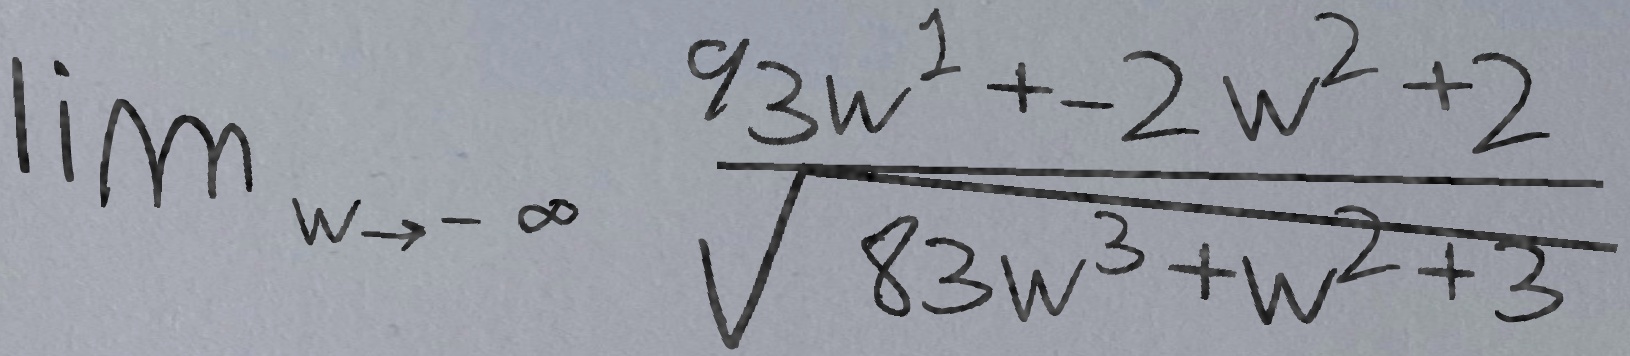 \lim_{w \to -\infty} \frac{93w^1 + -2w^2 + 2}{\sqrt{83w^3 + w^2 + 3}}